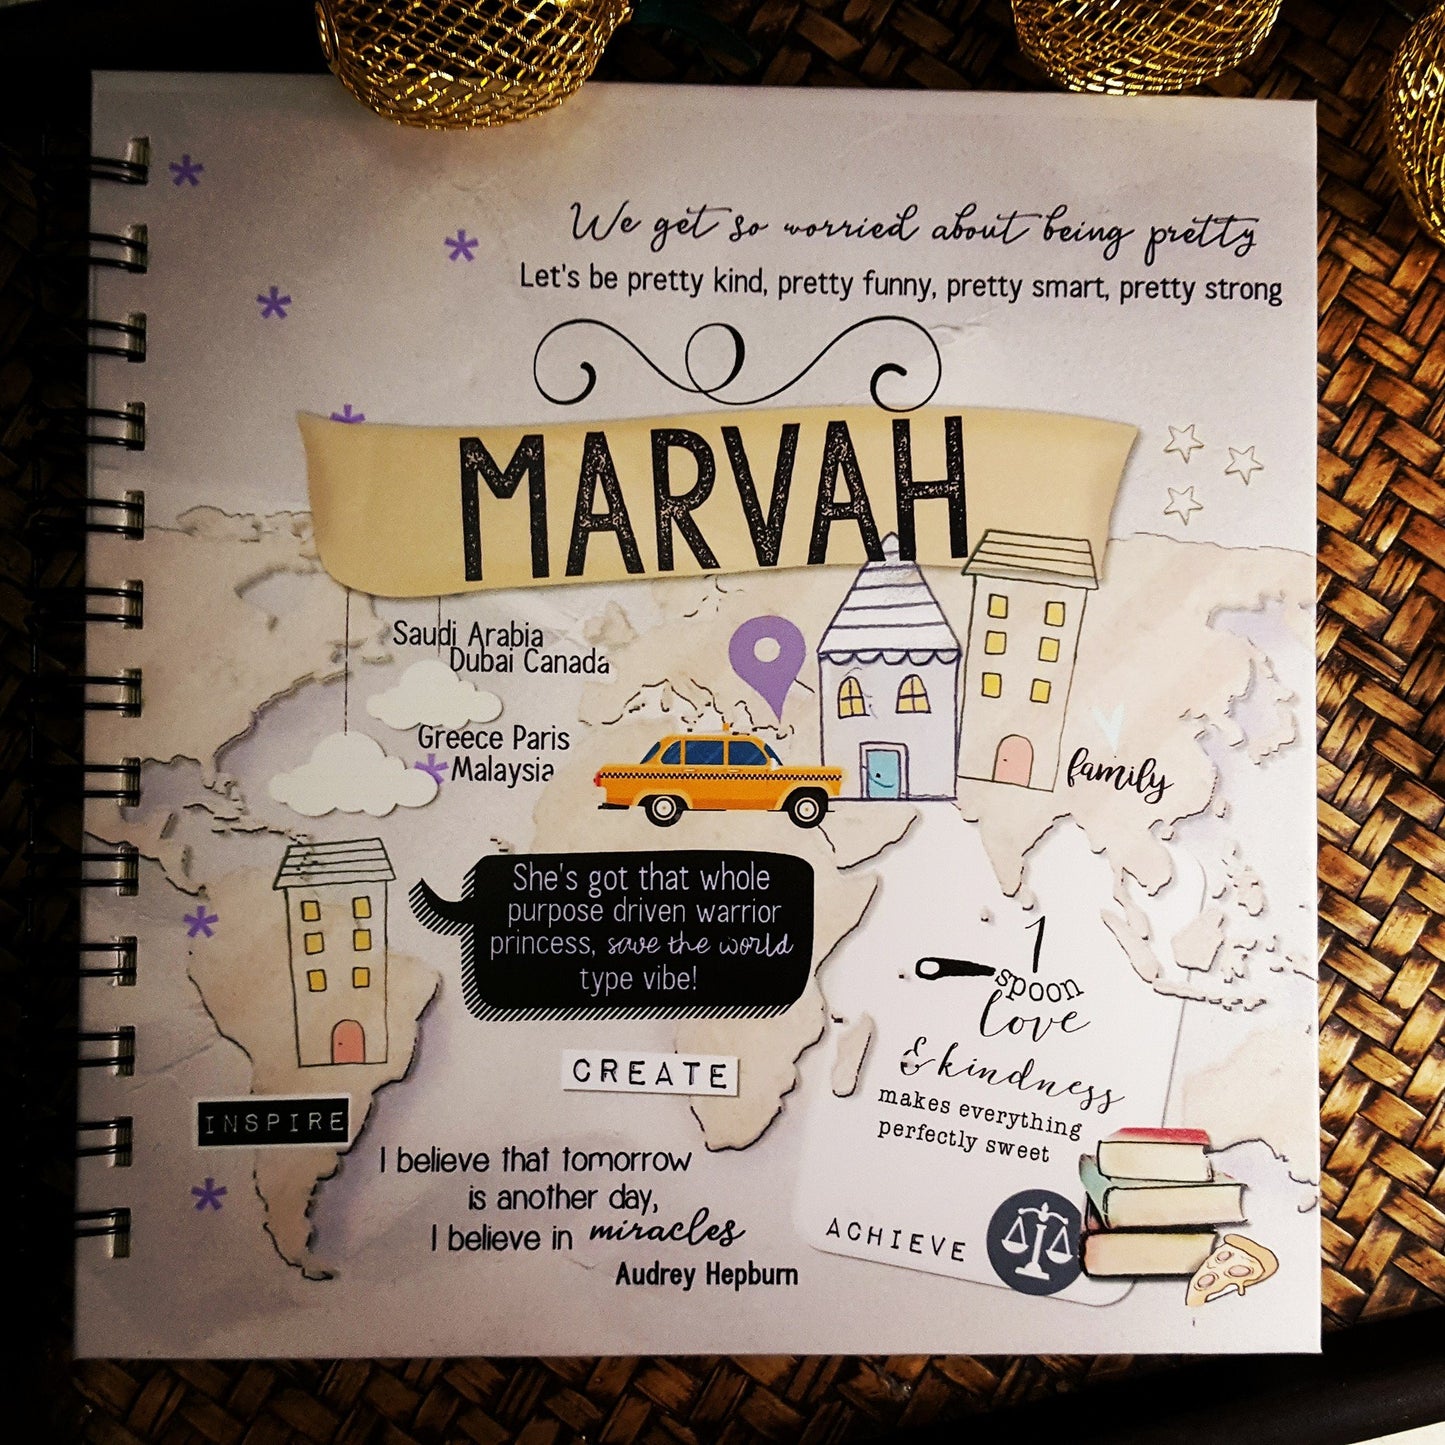 We get so worried about being pretty
Let's be pretty kind, pretty funny, pretty smart, pretty strong
MARVAH
Saudi Arabia
Dubai Canada
Greece Paris
Malaysia
family
She's got that whole
purpose driven warrior
princess, save the world
type vibe!
1
spoon
love
& kindness
makes everything
perfectly sweet
CREATE
INSPIRE
I believe that tomorrow
is another day,
I believe in miracles
Audrey Hepburn
ACHIEVE